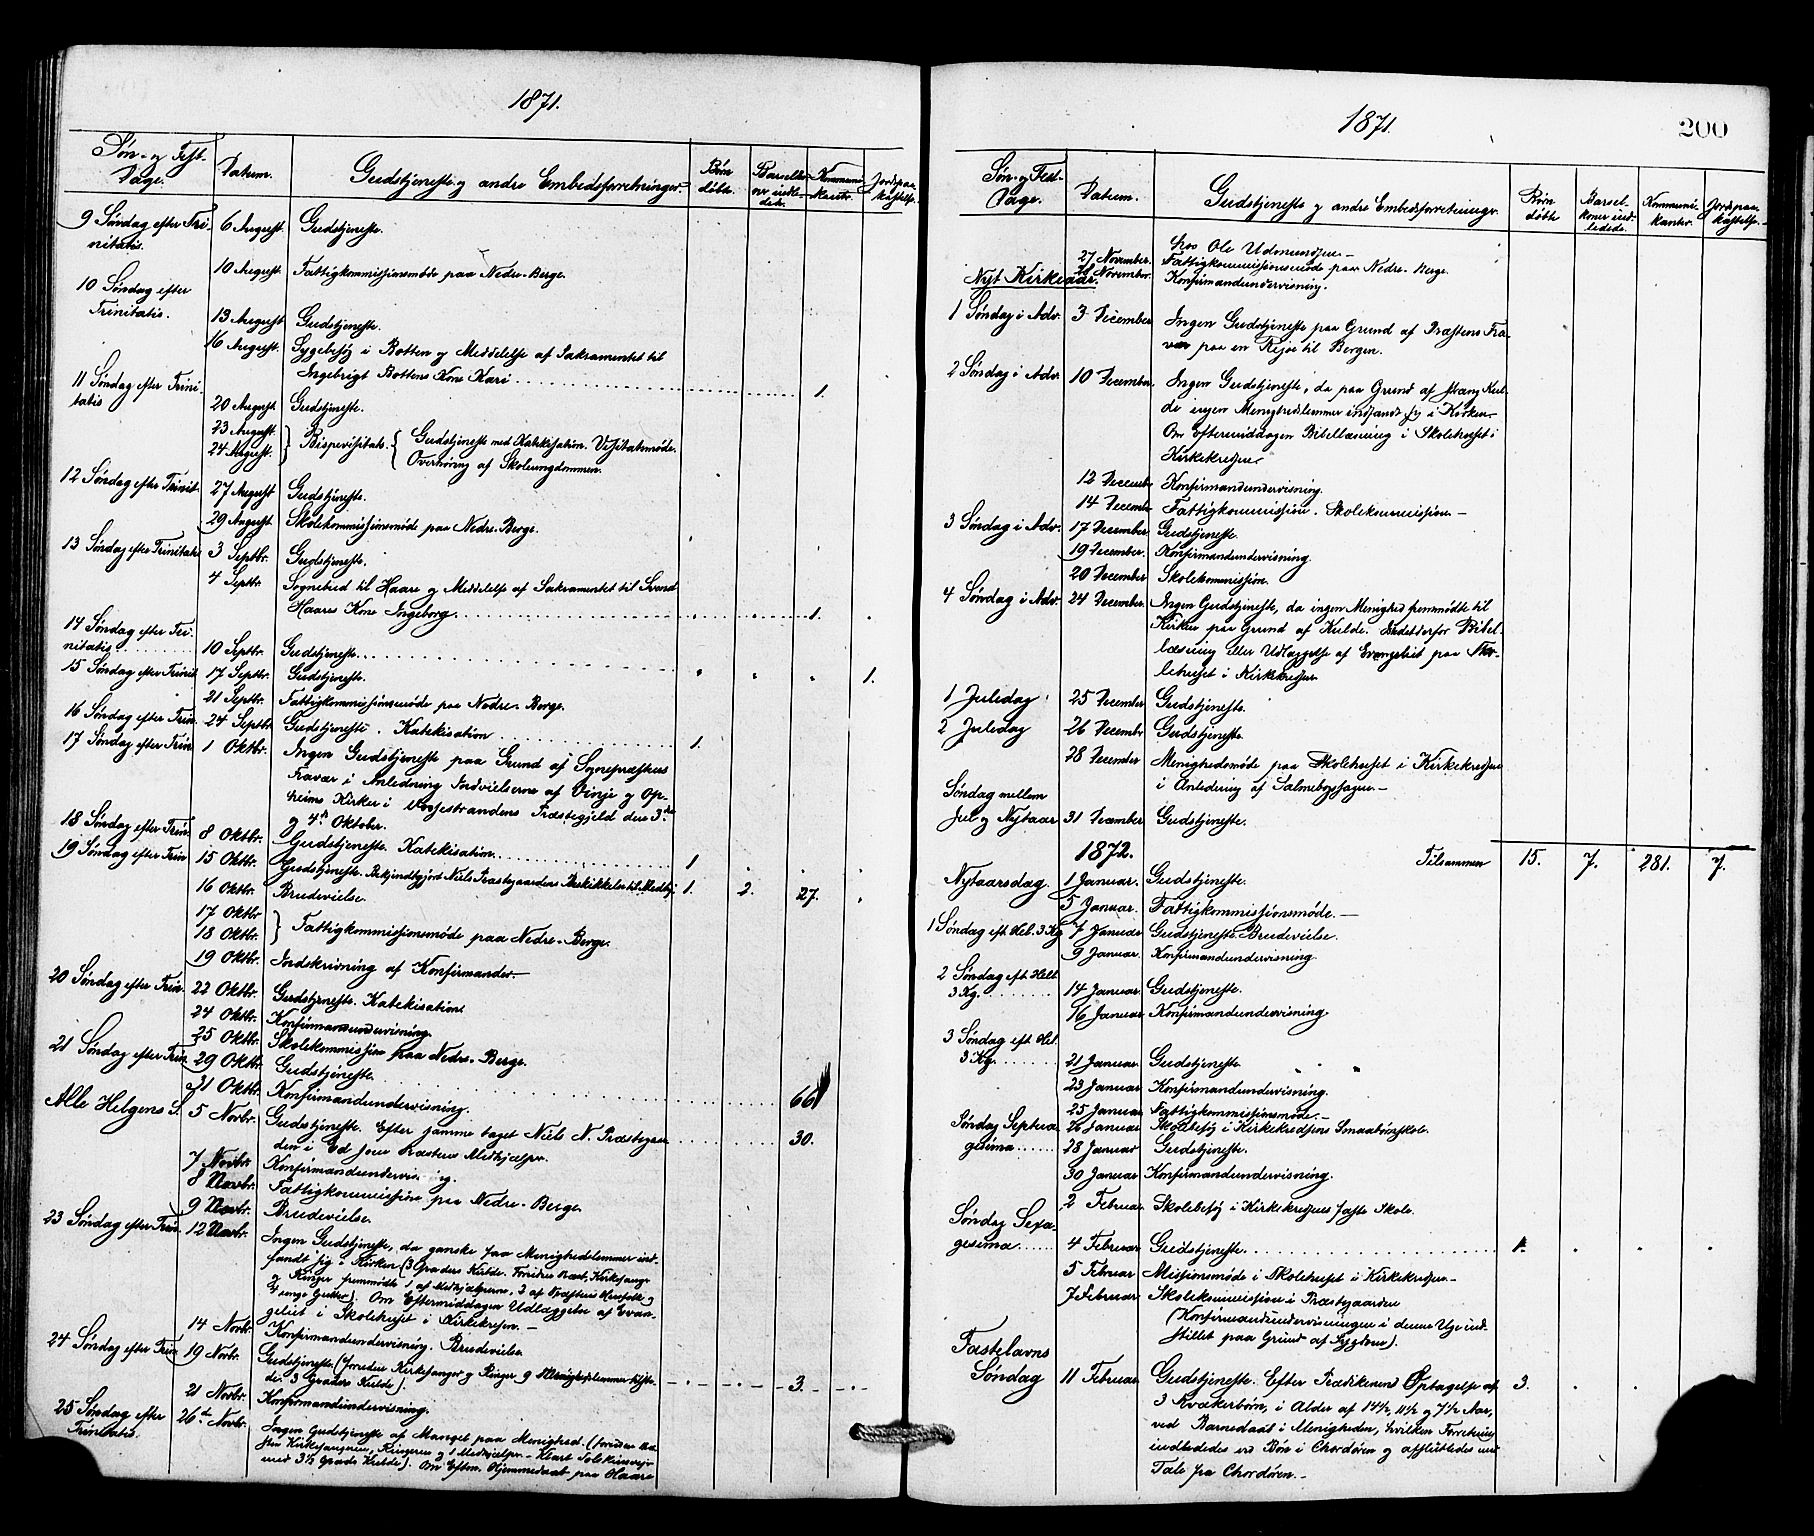 1871.
Søn- og Fest-Dage. Datum. Gudstjeneste og andre Embedsforretninger. Børn døbte. Barselkoner indledede. Kommunikanter. Jordpaakastelse.
9 Søndag efter Trinitatis. 6 August. Gudstjeneste.
10 August. Fattigkommissionsmøde paa Nedre-Berge.
10 Søndag efter Trinitatis. 13 August. Gudstjeneste.
16 August. Sygebesøg i Botten og Meddelelse af Sakramentet til
Ingebrigt Bottens Kone Kari 1.
11 Søndag efter Trinitatis 20 August. Gudstjeneste.
23 August. 24 August. Bispevisitats. Gudstjeneste med Katekisation. Visitatsmøde.
Overhøring af Skoleungdommen.
12 Søndag efter Trinit. 27 August Gudstjeneste.
29 August. Skolekommissionsmøde paa Nedre-Berge.
13 Søndag efter Trinitatis 3 Septbr. Gudstjeneste.
4 Septbr. Sognebud til Haare og Meddelelse af Sakramentet til Svend
Haares Kone Ingeborg 1.
14 Søndag efter Trinitatis 10 Septbr. Gudstjeneste.
15 Søndag efter Trinit. 17 Septbr. Gudstjeneste. 1.
21 Septbr. Fattigkommissionsmøde paa Nedre-Berge.
16 Søndag efter Trin. 24 Septbr. Gudstjeneste. Katekisation 1.
17 Søndag efter Trin. 1 Oktbr. Ingen Gudstjeneste paa Grund af Sognepræstens
Fravær i Anledning Indvielserne af Vinje og Op-
heims Kirker i Vossestrandens Præstegjeld den 3die
og 4de Oktober.
18 Søndag efter Trin. 8 Oktbr. Gudstjeneste. Katekisation. 1
19 Søndag efter Trin 15 Oktbr. Gudstjeneste. Bekjendtgjørd Niels Præstegaardens Beskikkelse til Medhj. 1. 2. 27.
16 Oktbr. Brudevielse.
17 Oktbr. 18 Oktbr. Fattigkommissionsmøde paa Nedre-Berge.
19 Oktbr. Indskrivning af Konfirmander.
20 Søndag efter Trin. 22 Oktbr. Gudstjeneste. Katekisation.
24 Oktbr. Konfirmandundervisning.
25 Oktbr. Skolekommission paa Nedre-Berge.
21 Søndag efter Trin. 29 Oktbr. Gudstjeneste. 66
31 Oktbr. Konfirmandundervisning.
Alle Helgens S. 5 Novbr. Gudstjeneste. Efter samme taget Niels N. Præstegaar- 30.
den i Ed som Præstens Medhjælper.
7 Novbr. Konfirmandundervisning.
8 Novbr. Fattigkommission paa Nedre-Berge.
9 Novbr. Brudevielse.
23 Søndag efter Trin. 12 Novbr. Ingen Gudstjeneste, da ganske faa Menighedslemmer ind-
fandt sig i Kirken (3 Graders Kulde. Foruden Præst, Kirkesanger
og Ringer fremmødte 1 af Medhjælperne, 3 af Præstens Husfolk og
unge Gutter). Om Eftermiddagen Udlæggelse af Evan-
geliet i Skolehuset i Kirkekredsen.
14 Novbr. Konfirmandundervisning. Brudevielse.
24 Søndag efter Trin. 19 Novbr. Gudstjeneste (foruden Kirkesanger og Ringer 9 Menighedslemmer tilste-
de. 3 Graders Kulde). 3.
21 Novbr. Konfirmandundervisning.
25 Søndag efter Trinitatis. 26de Novbr. Ingen Gudstjeneste af Mangel paa Menighed (foruden
Kirkesangeren, Ringeren og 1 Medhjælper. Klart Solskinsveir
med 3½ Grads Kulde). Om Efterm. Hjemmedaab paa Haare
1871. 200
Søn- og Fest-Dage. Datum. Gudstjeneste og andre Embedsforretningr. Børn døbte Barselkoner indledede. Kommunikanter. Jordpaakastelse.
hos Ole Udmundsen.
27 November. Fattigkommissionsmøde paa Nedre-Berge.
28 November. Konfirmandundervisning.
Nyt Kirkeaar.
1 Søndag i Adv. 3 December Ingen Gudstjeneste paa Grund af Præstens Fra-
vær paa en Rejse til Bergen.
2 Søndag i Adv. 10 December. Ingen Gudstjeneste, da paa Grund af stræng Kul-
de ingen Menighedslemmer indfandt sig i Kirken.
Om Eftermiddagen Bibellæsning i Skolehuset i
Kirkekredsen.
12 Decembr Konfirmandundervisning.
14 Decembr Fattigkommission. Skolekommission.
3 Søndag i Adv. 17 December. Gudstjeneste.
19 December. Konfirmandundervisning.
20 December Skolekommission.
4 Søndag i Adv. 24 December. Ingen Gudstjeneste, da ingen Menighed fremmødte til
Kirken paa Grund af Kulde. Istedetderfor Bibel-
læsning eller Udlæggelse af Evangeliet paa Sko-
lehuset i Kirkekredsen.
1 Juledag 25 December Gudstjeneste.
2 Juledag 26 Decembr Gudstjeneste.
28 December Menighedsmøde paa Skolehuset i Kirkekredsen
i Anledning af Salmebogssagen.
Søndag mellem
Jul og Nytaar 31 December Gudstjeneste.
1872. Tilsammen 15. 7. 281. 7.
Nytaarsdag. 1 Januar. Gudstjeneste.
5 Januar. Fattigkommissionsmøde.
1 Søndag eft. Hel. 3 Kg 7 Januar Gudstjeneste. Brudevielse.
9 Januar. Konfirmandundervisning.
2 Søndag eft. Hell. 3 Kg. 14 Januar. Gudstjeneste.
16 Januar Konfirmandundervisning.
3 Søndag eft. Hel. 3 Kg. 21 Januar. Gudstjeneste.
23 Januar. Konfirmandundervisning.
25 Januar. Fattigkommissionsmøde.
26 Januar. Skolebesøg i Kirkekredsens Smaabørsskole.
Søndag Septuagesima 28 Januar Gudstjeneste.
30 Januar. Konfirmandundervisning.
2 Februar. Skolebesøg i Kirkekredsens faste Skole.
Søndag Sexagesima 4 Februar Gudstjeneste. 1.
5 Februar Missionsmøde i Skolehuset i Kirkekredsen.
7 Februar. Skolekommission i Præstegaarden
(Konfirmandundervisningen i denne Uge ind-
stillet paa Grund af Sygdom).
Fastelavns Søndag 11 Februar Gudstjeneste. Efter Prædikenen Optagelse af 3.
3 Kvækerbørn, i Alder af 14½, 11½ og 7½ Aar,
ved Barnedaab i Menigheden, hvilken Forretning
indlededes ved Bøn i Chordøren og afsluttedes med
Tale fra Chordøren.